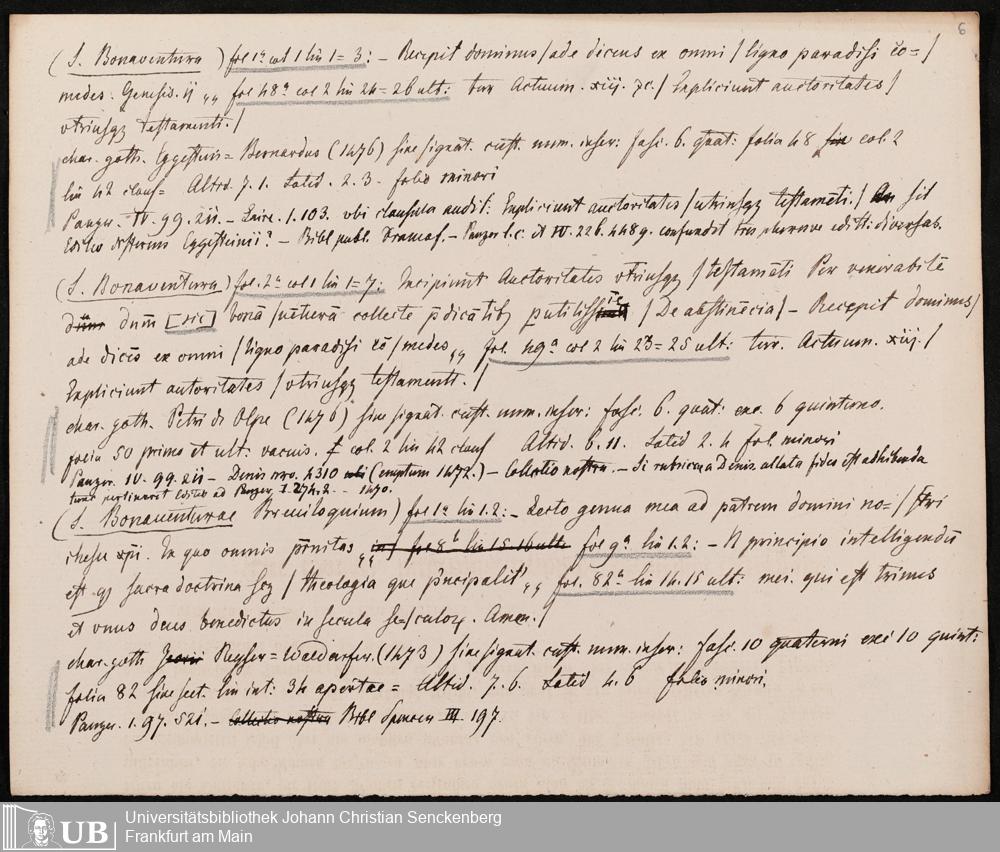 6
(S. Bonaventura) fol 1ª col 1 lin 1=3: – Recepit dominus / ade dicens ex omni / ligno paradisi cō= /
medes. Genesis. ij „ fol 48ª col 2 lin 24=26 ult: tur Actuum. xiij. ⁊c. / Expliciunt auctoritates /
vtriusqȝ testamenti. /
char. goth. Eggestein= Bernardus (1476) sine signat. cust. num. inser: fasc. 6. quat: folia 48 col. 2
lin 42 clauf= Altid. 7. 1. Latid. 2. 3. folio minori
Panzer. IV. 99. 2ii. – Laire. 1. 103. vbi clausula audit: Expliciunt auctoritates / utriusqȝ testamēti. / An sit
Editio Eggesteinii? – Bibl publ. – Panzer l.c. et IV. 226. 448g. confundit tres edit: diversas.
(S. Bonavētura) fol. 2ª col 1 lin 1=7: Incipiunt Auctoritates vtriusqȝ / testamēti Per venerabilē
dum̄ [sic] bonā / uēturā collecte p̄dicātibȝ putiliss / De abstinēcia / – Recepit dominus /
ade dicēs ex omni / ligno paradisi cō / medes „ fol. 49ª col 2 lin 23=25 ult: tur. Actuum. xiij. /
Expliciunt autoritates / vtriusqȝ testamenti. /
char. goth. Petri de Olpe (1476) sine signat. cust. num. inser: fasc. 6. quat: exc. 6 quinterno.
folia 50 primo et ult: vacuis. f col. 2 lin 42 clauf Altid. 6. 11. Latid 2. 4 fol. minori
Panzer. IV. 99. 2ii – Denis nro. 4310 (emptum 1472.) – Collectio nostra. – Si rubricae a Denis allata fides est adhibenda
tunc pertineret Editio ad Panzer I. 274. 2. – 1470.
(S. Bonauēturae Breuiloquium) fol 1ª lin 1.2: – Flecto genua mea ad patrem domini no= / stri
ihesu xpi. Ex quo omnis p̄nitas „ in) fol 8ᵇ lin 15.16 ult: fol 9ª lin 1.2: – N principio intelligendū
est qȝ sacra doctrina scȝ / theologia que p̄ncipalit' „ fol. 82ª lin 14. 15 ult: mei. qui est trinus
et vnus deus benedictus in secula se= / culoꝝ. Amen. /
char. goth Reyser= Waldarfer. (1473) sine signat. cust. num. inser: fasc. 10 quaterni exc: 10 quint:
folia 82 sine sect. lin int: 34 apertae = Altid. 7. 6. Latid 4. 6 folio minori.
Panzer. 1. 97. 521. – Collectio nostra Bibl Spencer III. 197.
Universitätsbibliothek Johann Christian Senckenberg
UB
Frankfurt am Main